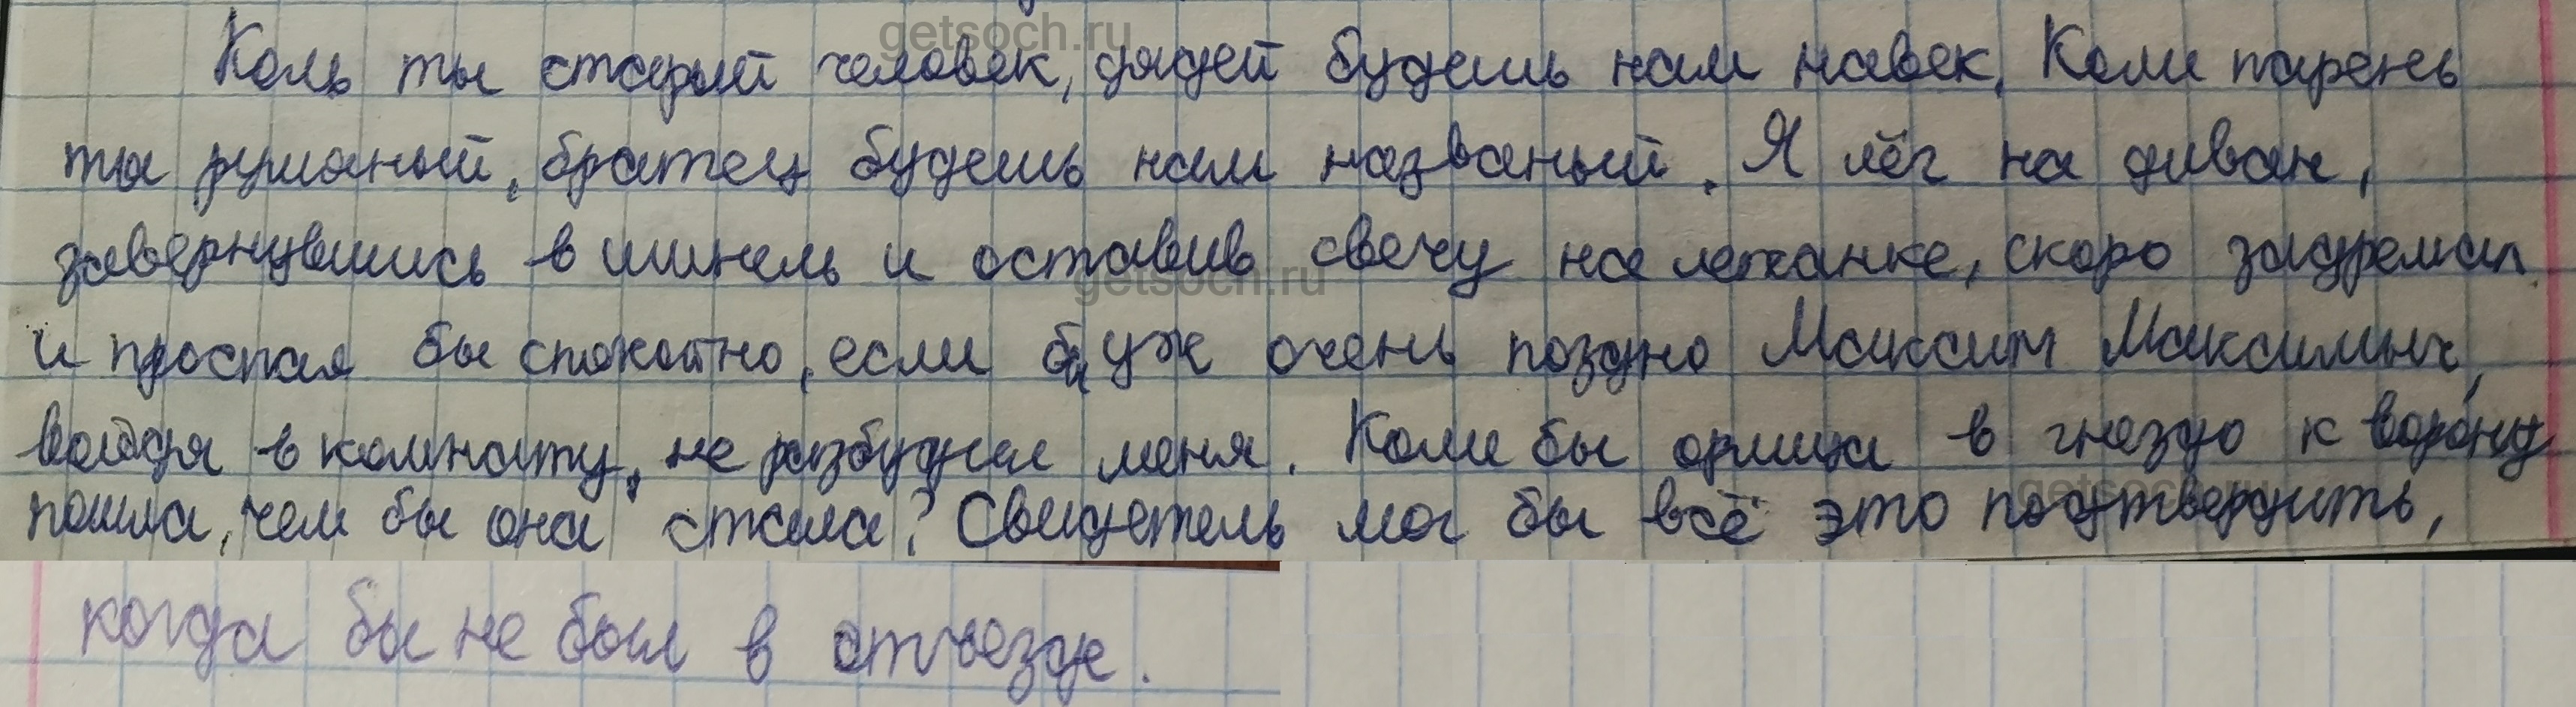 Коль ты старый человек, дядей будешь нам навек. Коли парень
ты румяный, братец будешь нам названый. Я лёг на диван,
завернувшись в шинель и оставив свечу на лежанке, скоро задремал
и проспал бы спокойно, если б уж очень поздно Максим Максимыч,
войдя в комнату, не разбудил меня. Коли бы орлица в гнездо к ворону
пошла, чем бы она стала? Свидетель мог бы всё это подтвердить,
когда бы не был в отъезде.
getsoch.ru
getsoch.ru
getsoch.ru